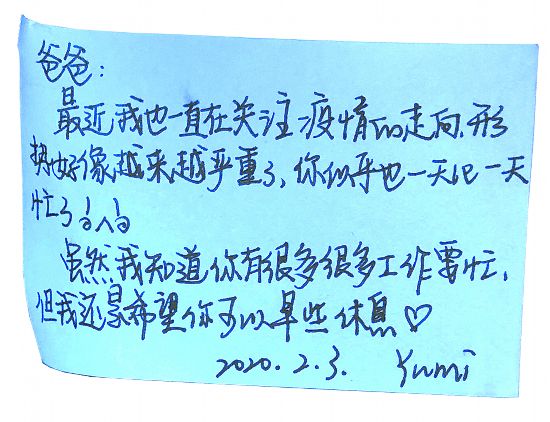 爸爸：
最近我也一直在关注疫情的走向，形
势好像越来越严重了，你似乎也一天比一天
忙了
虽然我知道你有很多很多工作要忙，
但我还是希望你可以早些休息♡
2020.2.3. Yumi